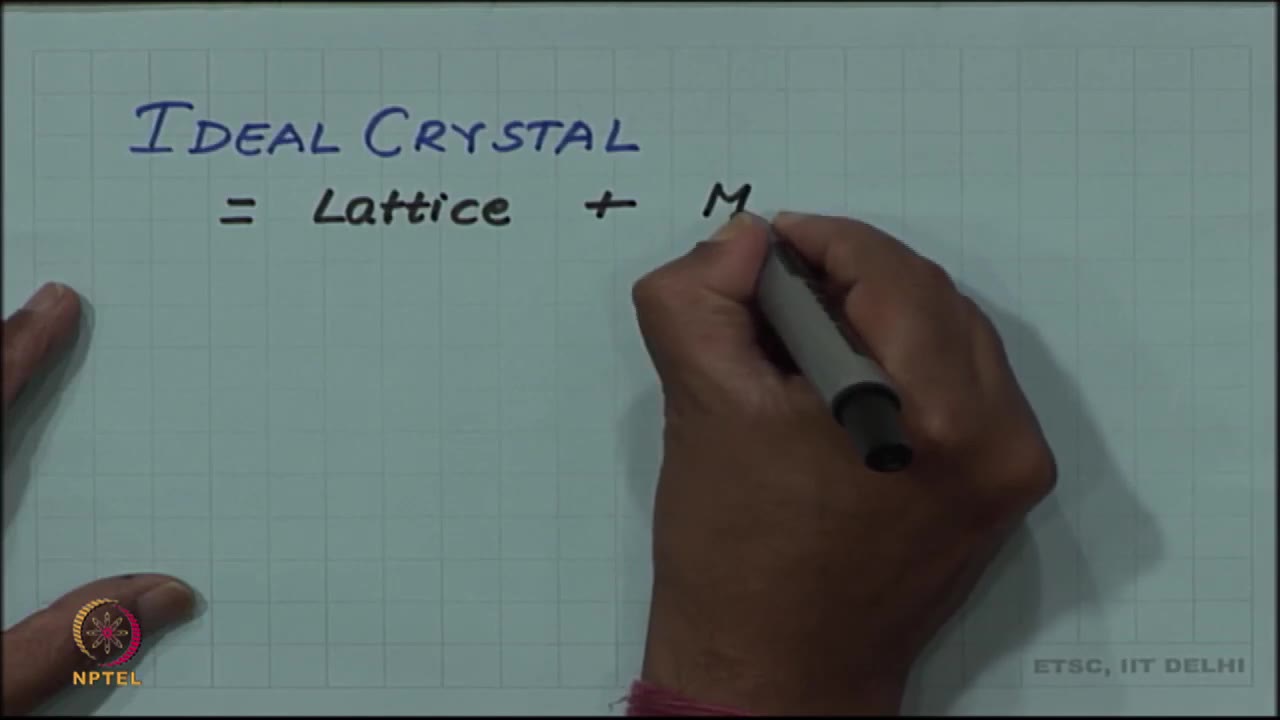 IDEAL CRYSTAL
= Lattice + M
NPTEL
ETSC, IIT DELHI